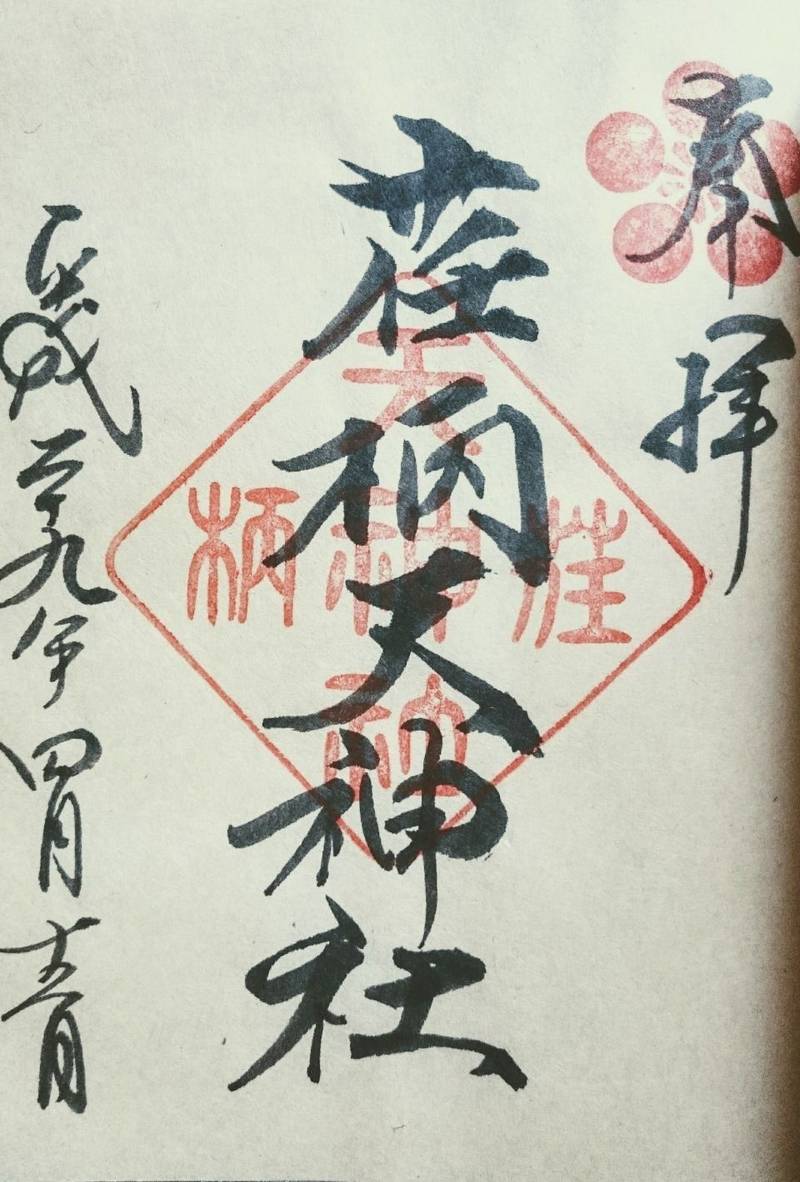 奉拝
荏柄天神社
平成二十九年四月十五日
荏柄天神社